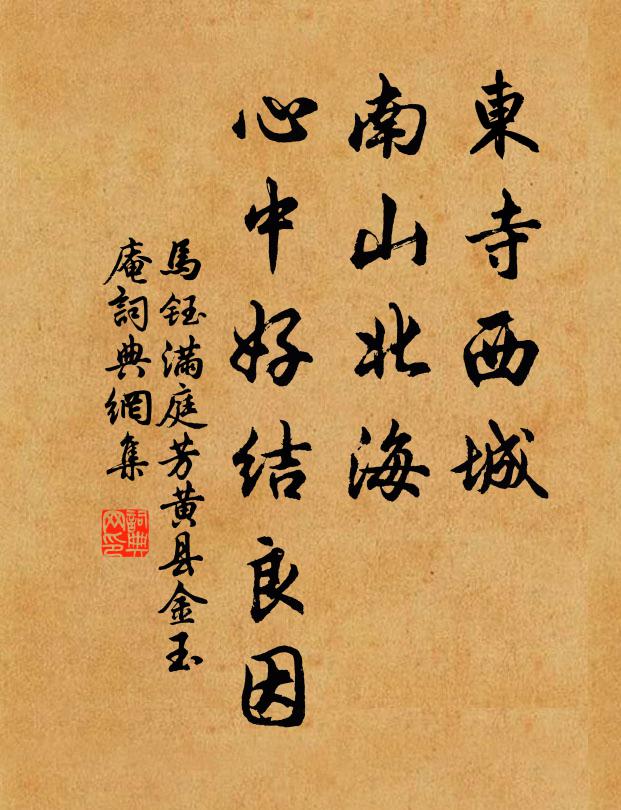 東寺西城
南山北海
心中好结良因
馬鈺满庭芳黄县金玉
庵詞典網集
詞典网印